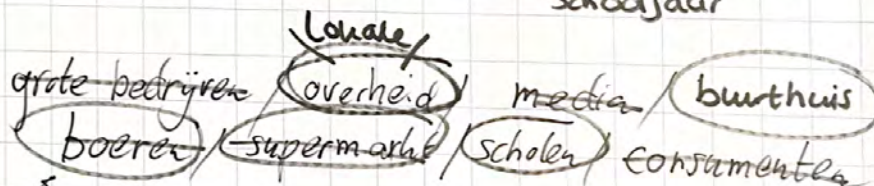 schooljaar
lokale
grote bedrijven / overheid / media / buurthuis
boeren / supermarkt / scholen / consumenten